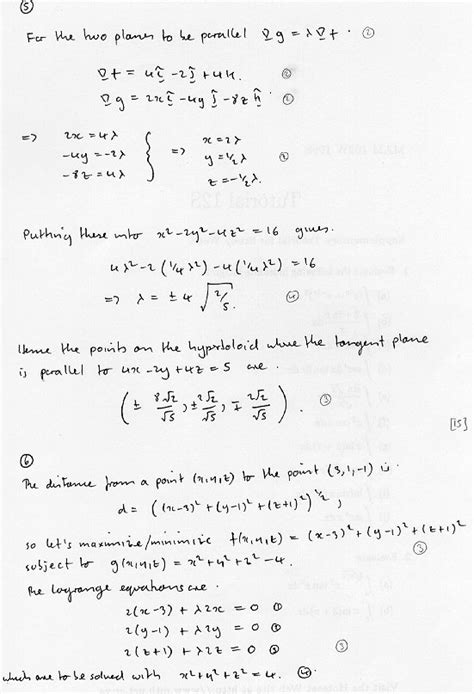 ⑤
For the two planes to be parallel ∇g = λ∇f. ②
∇f = 4î - 2ĵ + 4k̂. ②
∇g = 2xî - 4yĵ - 8zk̂. ②
=> 2x = 4λ
-4y = -2λ
-8z = 4λ
=> x = 2λ
y = ½λ ②
z = -½λ.
Putting these into x² - 2y² - 4z² = 16 gives.
4λ² - 2(¼λ²) - 4(¼λ²) = 16
=> λ = ± 4√(2/5). ④
Hence the points on the hyperboloid where the tangent plane
is parallel to 4x - 2y + 4z = 5 are.
(± 8√2/√5, ± 2√2/√5, ∓ 2√2/√5). ③
[15]
⑥
The distance from a point (x,y,z) to the point (3,1,-1) is
d = ((x-3)² + (y-1)² + (z+1)²)^½,
so let's maximize/minimize f(x,y,z) = (x-3)² + (y-1)² + (z+1)²
subject to g(x,y,z) = x² + y² + z² - 4. ③
The lagrange equations are.
2(x-3) + λ2x = 0 ①
2(y-1) + λ2y = 0 ②
2(z+1) + λ2z = 0 ③ ③
which are to be solved with x² + y² + z² = 4. ④.